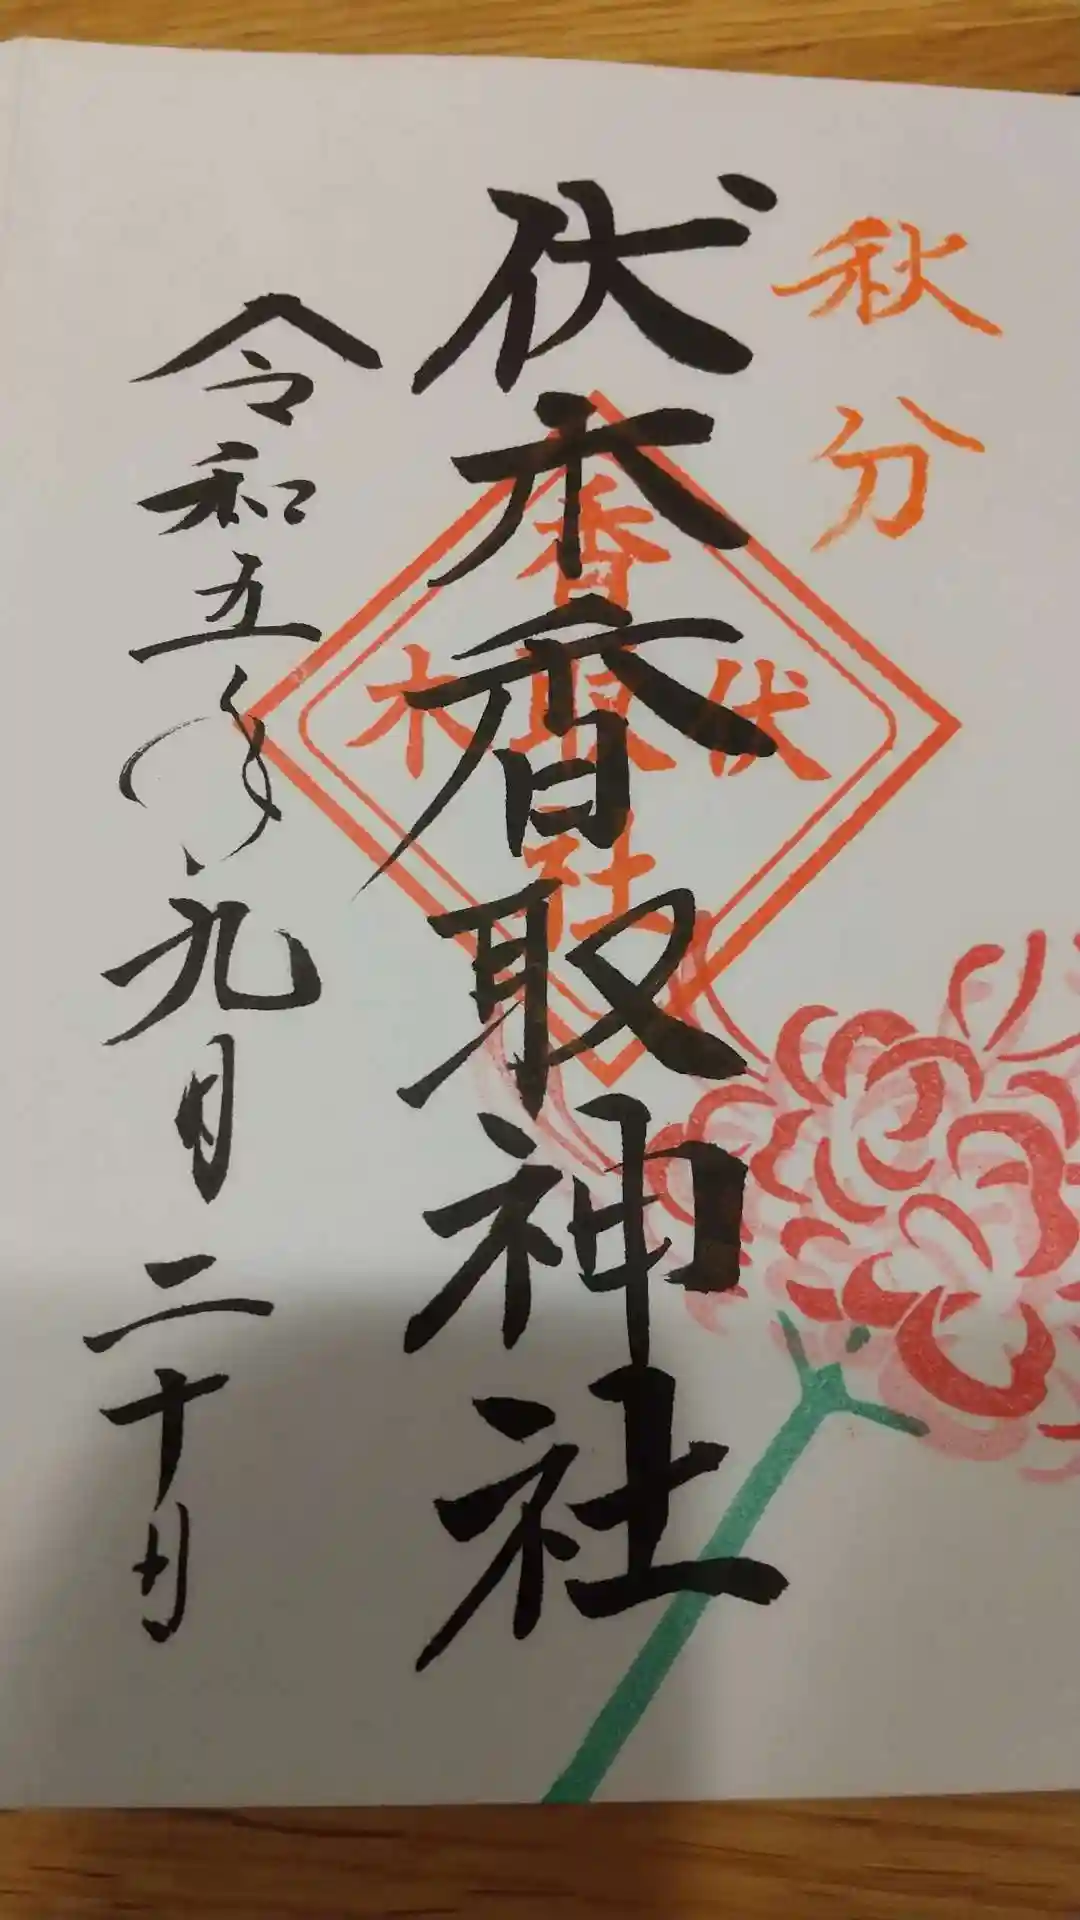 秋分
伏木香取神社
香取社
伏木
令和五年九月二十日